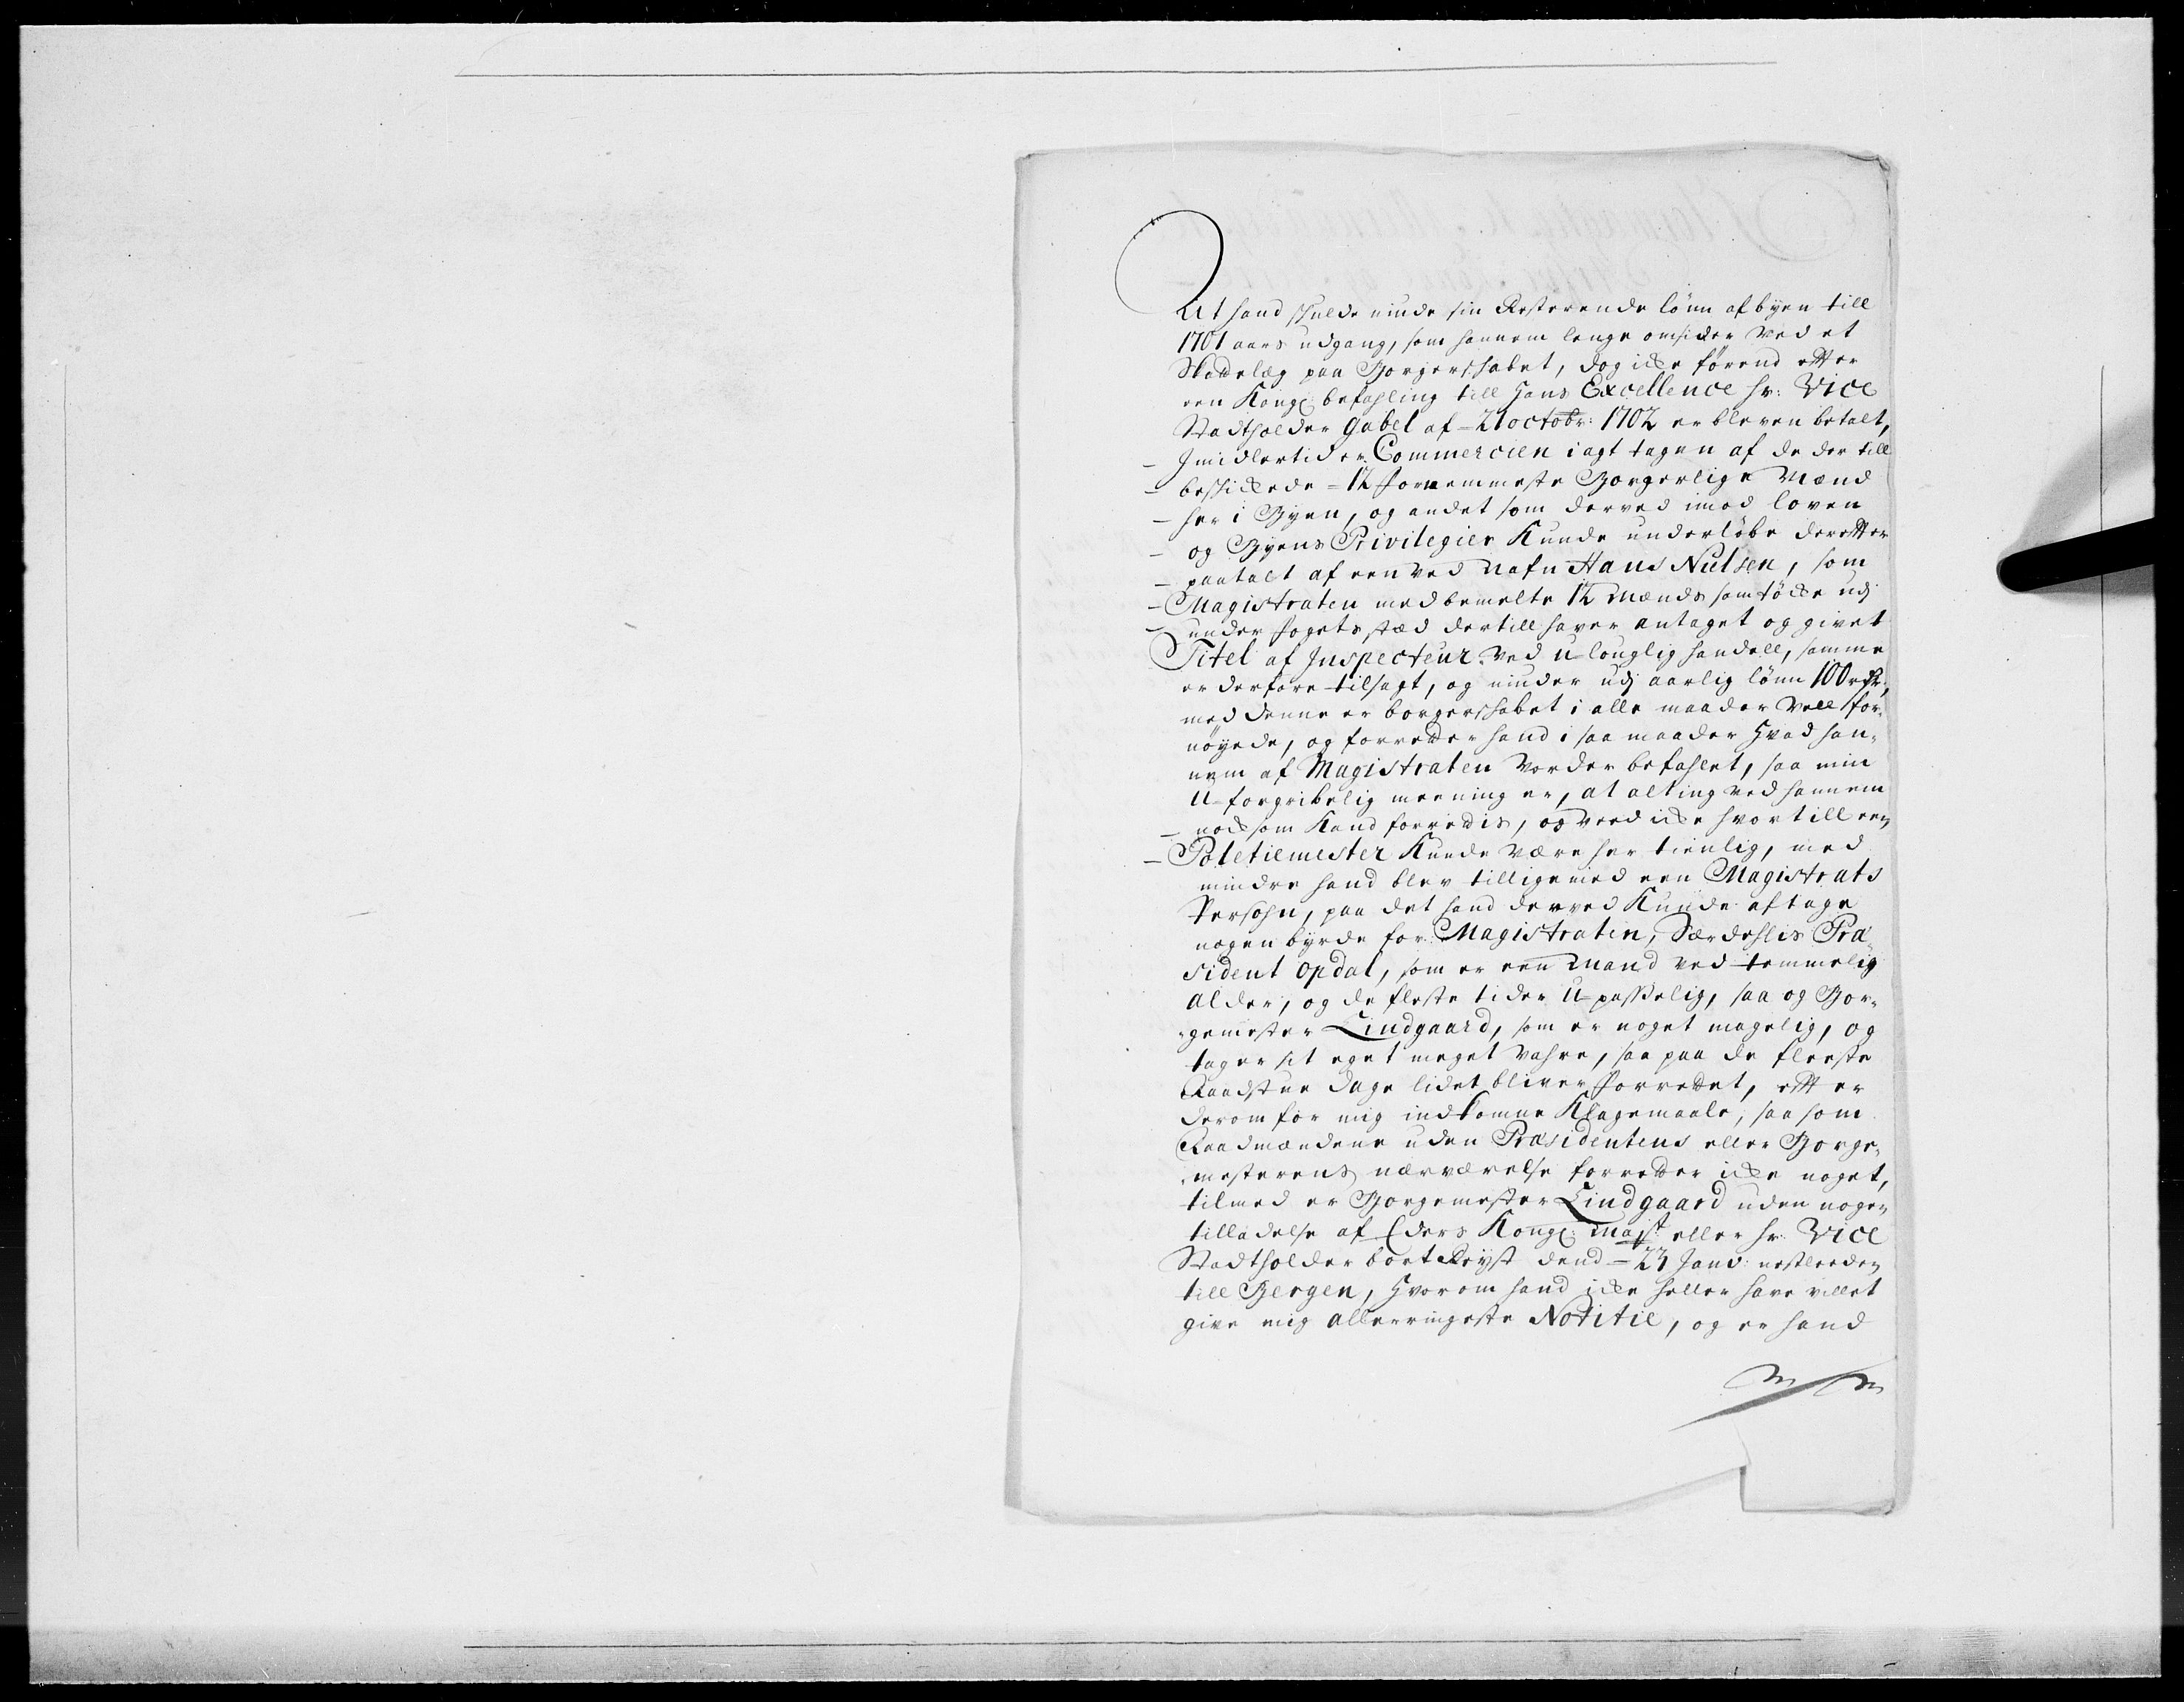 At hand skulde niude sin Resterende lönn af byen till
1701 aars udgang, som hannem lenge omsider ved et
Skadelæg paa Borgerskabet, dog icke förend etter
een Kongl: befahling till Hans Excellence hr: Vice
Stadtholder Gabel af 21 octobr: 1702 er bleven betalt,
Imidlertid er Commercien i agt tagen af de der till
beskickede 12 fornemmeste Borgerlige Mænd
her i Byen, og andet som derved imod loven
og Byens Privilegier Kunde underlöbe deretter
paatalt af een ved nafn Hans Nielsen, som
Magistraten med bemelte 12 Mænds samtöcke udj
underfogets sted dertill haver antaget og givet
Titel af Inspecteur ved u-louglig handell, samme
er derfore tilsagt, og niuder udj aarlig lönn 100 rdr,
med denne er borgerskabet i alle maader vell for-
nöyede, og forretter hand i saa maader Hvad han-
nem af Magistraten vorder befahlet, saa min
U-forgribelig meening er, at alting ved hannem
nock som Kand forrettis, og veed icke hvor till een
Poletiemester Kunde være her tienlig, med
mindre hand blev tilligemed een Magistrats
Persohn, paa det hand derved Kunde aftage
nogen byrde for Magistraten, Særdehlis Præ-
sident Opdal, som er een Mand ved temmelig
Alder, og de fleste tider U-passelig, saa og Bor-
gemester Lindgaard, som er noget magelig, og
tager sit eget meget vahre, saa paa de fleeste
Raadstue dage lidet bliver forrettet, etter
derom for mig indkomne Klagemaale, saa som
Raadmændene uden Præsidentens eller Borge-
mesterens nærværelse forretter icke noget,
tilmed er Borgemester Lindgaard uden nogen
tilladelse af Eders Kongl: Majst eller hr: Vice
Stadtholder bortreyst dend 23 Janv: nestleeden
till Bergen, Hvorom hand icke heller have villet
give mig allerringeste Notitie, og er hand